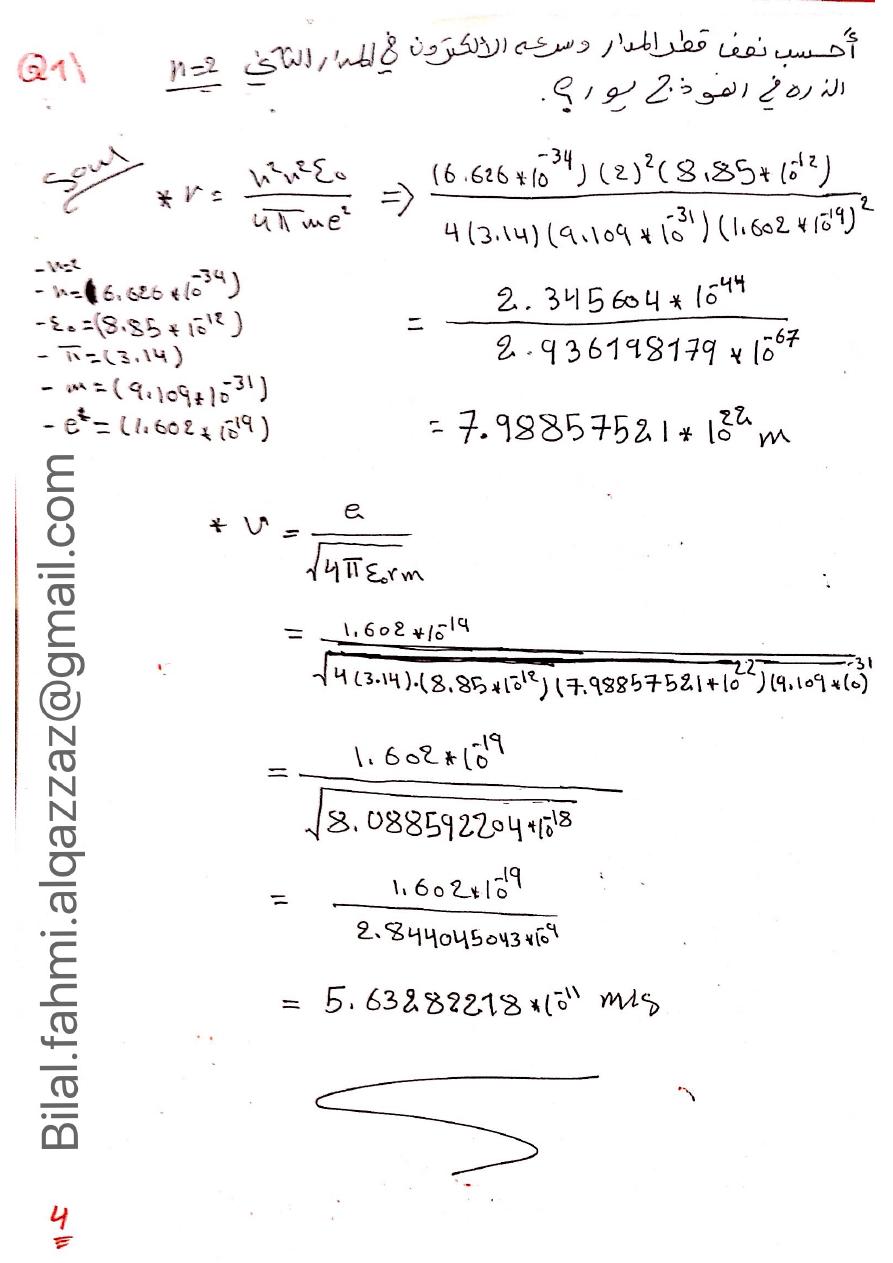 Q1\
أحسب نصف قطر المدار وسرعه الالكترون في المدار الثاني n=2
الذره في النموذج بور؟.
* r = n²h²ε₀ / 4π m e² => (6.626*10^-34) (2)² (8.85*10^-12) / 4(3.14) (9.109*10^-31) (1.602*10^-19)²
- n=2
- h=(6.626*10^-34)
- ε₀=(8.85*10^-12)
- π=(3.14)
- m=(9.109*10^-31)
- e²=(1.602*10^-19)
= 2.345604*10^-44 / 2.936198179*10^-67
= 7.98857521*10^22 m
* v = e / √4πε₀rm
= 1.602*10^-19 / √4(3.14).(8.85*10^-12)(7.98857521*10^22)(9.109*10^-31)
= 1.602*10^-19 / √8.088592204*10^-18
= 1.602*10^-19 / 2.844045043*10^-9
= 5.63282218*10^-11 m/s
Bilal.fahmi.alqazzaz@gmail.com
4